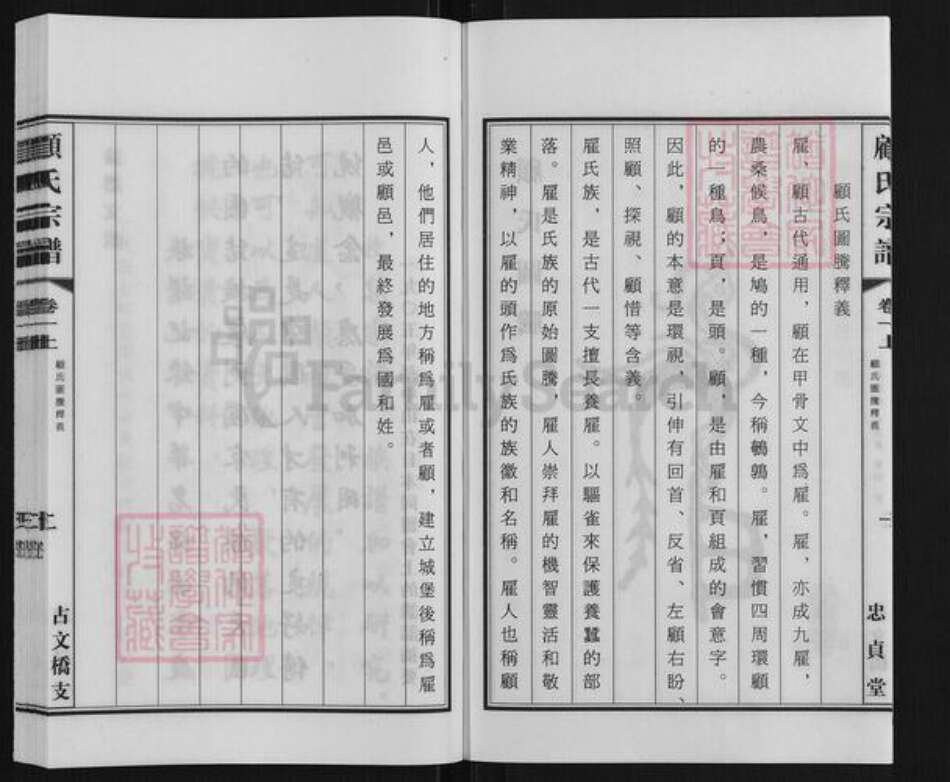 顧氏宗譜
卷一上
忠貞堂
顧氏圖騰釋義
雇、顧古代通用，顧在甲骨文中爲雇。雇，亦成九雇，
農桑候鳥，是鳩的一種，今稱鵪鶉。雇，習慣四周環顧
的一種鳥；頁，是頭。顧，是由雇和頁組成的會意字。
因此，顧的本意是環視，引伸有回首、反省、左顧右盼、
照顧、探視、顧惜等含義。
雇氏族，是古代一支擅長養雇。以驅雀來保護養蠶的部
落。雇是氏族的原始圖騰，雇人崇拜雇的機智靈活和敬
業精神，以雇的頭作爲氏族的族徽和名稱。雇人也稱顧
人，他們居住的地方稱爲雇或者顧，建立城堡後稱爲雇
邑或顧邑，最終發展爲國和姓。
顧氏宗譜
卷一上
顧氏圖騰釋義
古文橋支
FamilySearch